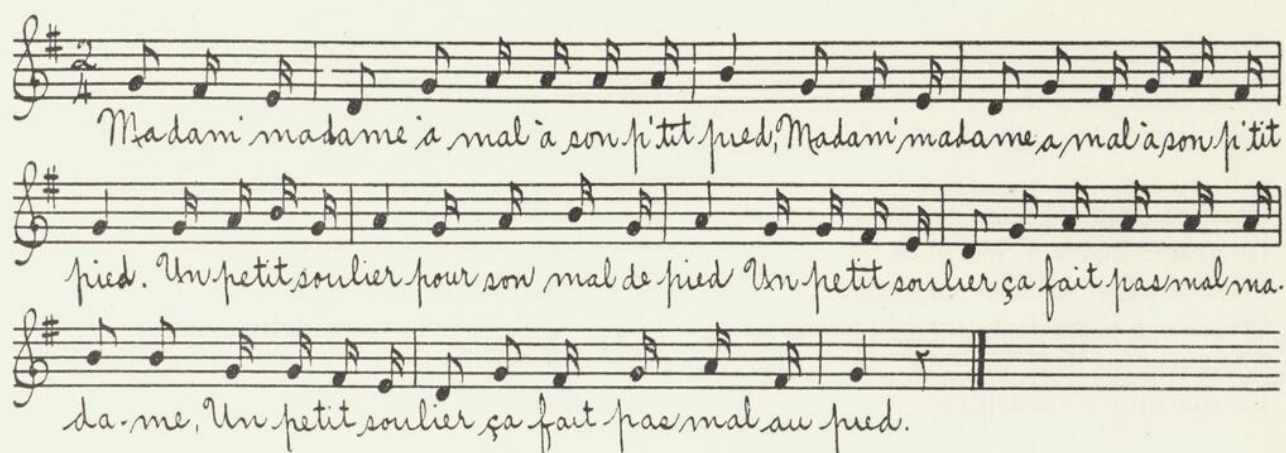 2/4
Madam' madame a mal à son p'tit pied, Madam' madame a mal à son p'tit
pied. Un petit soulier pour son mal de pied Un petit soulier ça fait pas mal ma-
da-me, Un petit soulier ça fait pas mal au pied.